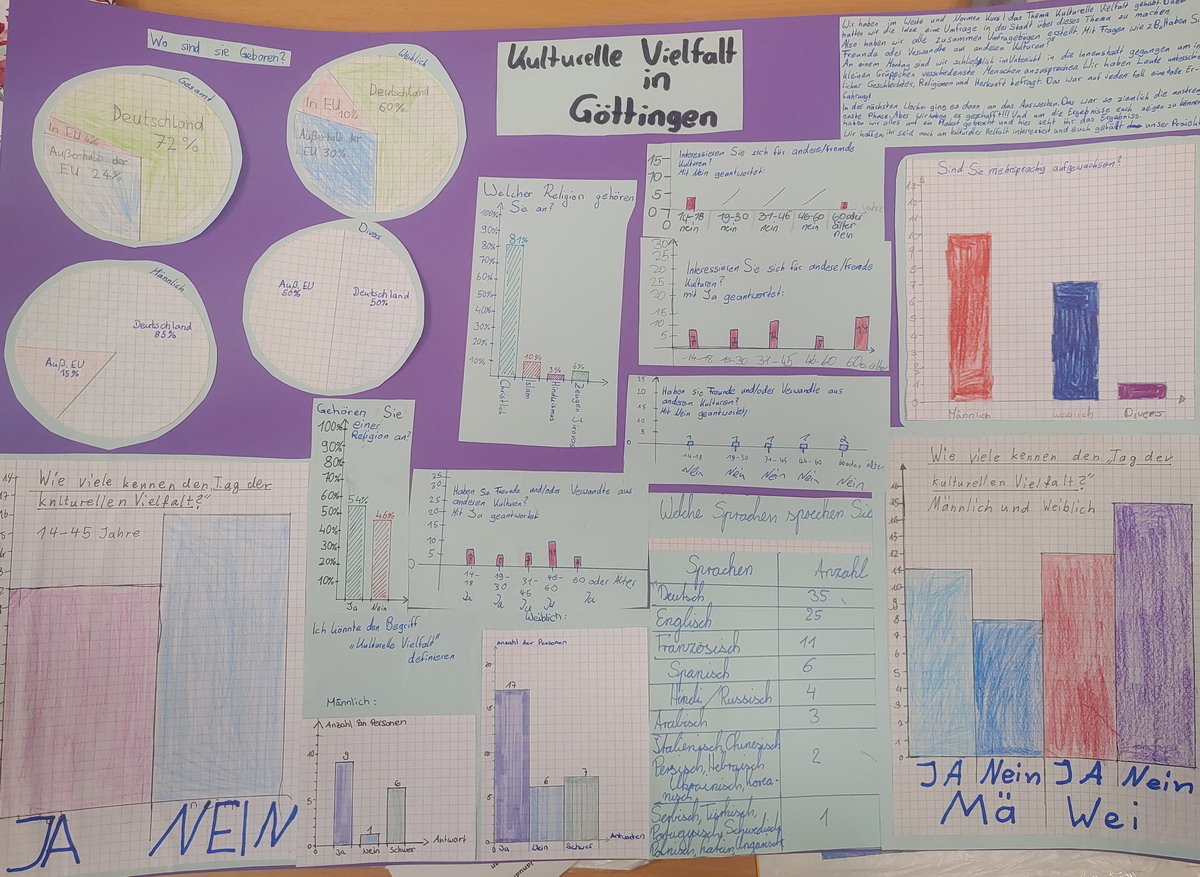 Wo sind sie Geboren?
Gesamt
Deutschland
72%
In EU 4%
Außerhalb der
EU 24%
Weiblich
Deutschland
60%
In EU
10%
Außerhalb der
EU 30%
Männlich
Deutschland
85%
Auß. EU
15%
Divers
Auß. EU
50%
Deutschland
50%
Kulturelle Vielfalt
in
Göttingen
Wir haben im Werte und Normen Kurs das Thema Kulturelle Vielfalt gehabt.
hatten wir die Idee eine Umfrage in der Stadt über dieses Thema zu machen.
Also haben wir alle zusammen Umfragebögen erstellt. Mit Fragen wie z.B. „Haben Sie
Freunde oder Verwandte aus anderen Kulturen?"
An einem Montag sind wir schließlich im Unterricht in die Innenstadt gegangen um in
kleinen Grüppchen verschiedenste Menschen anzusprechen. Wir haben Leute
licher Geschlechter, Religionen und Herkunft befragt. Das war auf jeden Fall eine tolle Er-
fahrung!
In der nächsten Woche ging es dann an das Auswerten. Das war so ziemlich die
erste Phase, aber wir haben es geschafft!!! Und um die Ergebnisse euch zeigen zu können
haben wir alles auf ein Plakat gebracht und hier seht ihr das Ergebniss.
Wir hoffen ihr seid auch an kultureller Vielfalt interessiert und euch gefällt unser Projekt
Welcher Religion gehören
Sie an?
100%
90%
80%
70%
60%
50%
40%
30%
20%
10%
81%
10%
3%
6%
Christlich
Islam
Hinduismus
Zeugen
Interessieren Sie sich für andere/fremde
Kulturen?
Mit Nein geantwortet:
15
10
5
0
14-18 19-30 31-45 46-60 60 oder
älter
nein nein nein nein nein
Interessieren Sie sich für andere/fremde
Kulturen?
mit Ja geantwortet:
14-18 19-30 31-45 46-60 60 o. älter
Haben sie Freunde und/oder Verwandte aus
anderen Kulturen?
Mit Nein geantwortet;
14-18 19-30 31-45 46-60 60 oder älter
Nein Nein Nein Nein Nein
Sind Sie mehrsprachig aufgewachsen?
Männlich Weiblich Divers
Gehören Sie
einer
Religion an?
100%
90%
80%
70%
60%
50%
40%
30%
20%
10%
54%
46%
Ja Nein
Haben Sie Freunde und/oder Verwandte aus
anderen Kulturen?
Mit Ja geantwortet
25
30
25
20
15
10
5
0
14-
18
19-
30
31-
45
46-
60
60 oder Älter
Ja Ja Ja Ja Ja
Wie viele kennen den „Tag der
knlturellen Vielfalt?"
14-45 Jahre
JA NEIN
Ich könnte den Begriff
„Kulturelle Vielfalt"
definieren
Männlich:
Anzahl an Personen
10
5
0
9
1
6
Ja Nein Schwer
Antwort
Weiblich:
Anzahl der Personen
17
6
7
Ja Nein Schwer
Antworten
Welche Sprachen sprechen Sie
Sprachen Anzahl
Deutsch 35
Englisch 25
Französisch 11
Spanisch 6
Hindi/Russisch 4
Arabisch 3
Italienisch, Chinesisch
Persisch, Hebräisch 2
Ukrainisch, korea-
nisch
Serbisch, Türkisch,
Portugiesisch, Schwedisch 1
Polnisch, Latein, Ungarisch
Wie viele kennen den „Tag der
kulturellen Vielfalt?"
Männlich und Weiblich
JA Nein JA Nein
Mä Wei